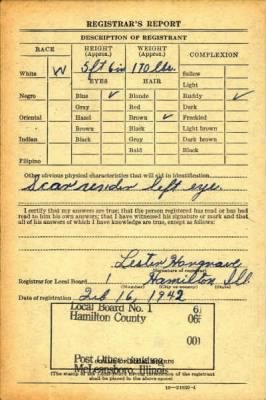 REGISTRAR'S REPORT
DESCRIPTION OF REGISTRANT
RACE HEIGHT (Approx.) WEIGHT (Approx.) COMPLEXION
White W 5 ft 6 in 170 lbs. Sallow
EYES HAIR Light
Negro Blue ✓ Blonde Ruddy ✓
Gray Red Dark
Oriental Hazel Brown ✓ Freckled
Brown Black Light brown
Indian Black Gray Dark brown
Bald Black
Filipino
Other obvious physical characteristics that will aid in identification
Scar under left eye.
I certify that my answers are true; that the person registered has read or has had
read to him his own answers; that I have witnessed his signature or mark and that
all of his answers of which I have knowledge are true, except as follows:
Lester
(Signature of registrar)
Registrar for Local Board 1 Hamilton Ill.
(Number) (City or county) (State)
Date of registration Feb 16, 1942
Local Board No. 1
Hamilton County
001
Post Office Building
McLeansboro, Illinois
(The stamp of the Local Board of the registrant
shall be placed in the above space)